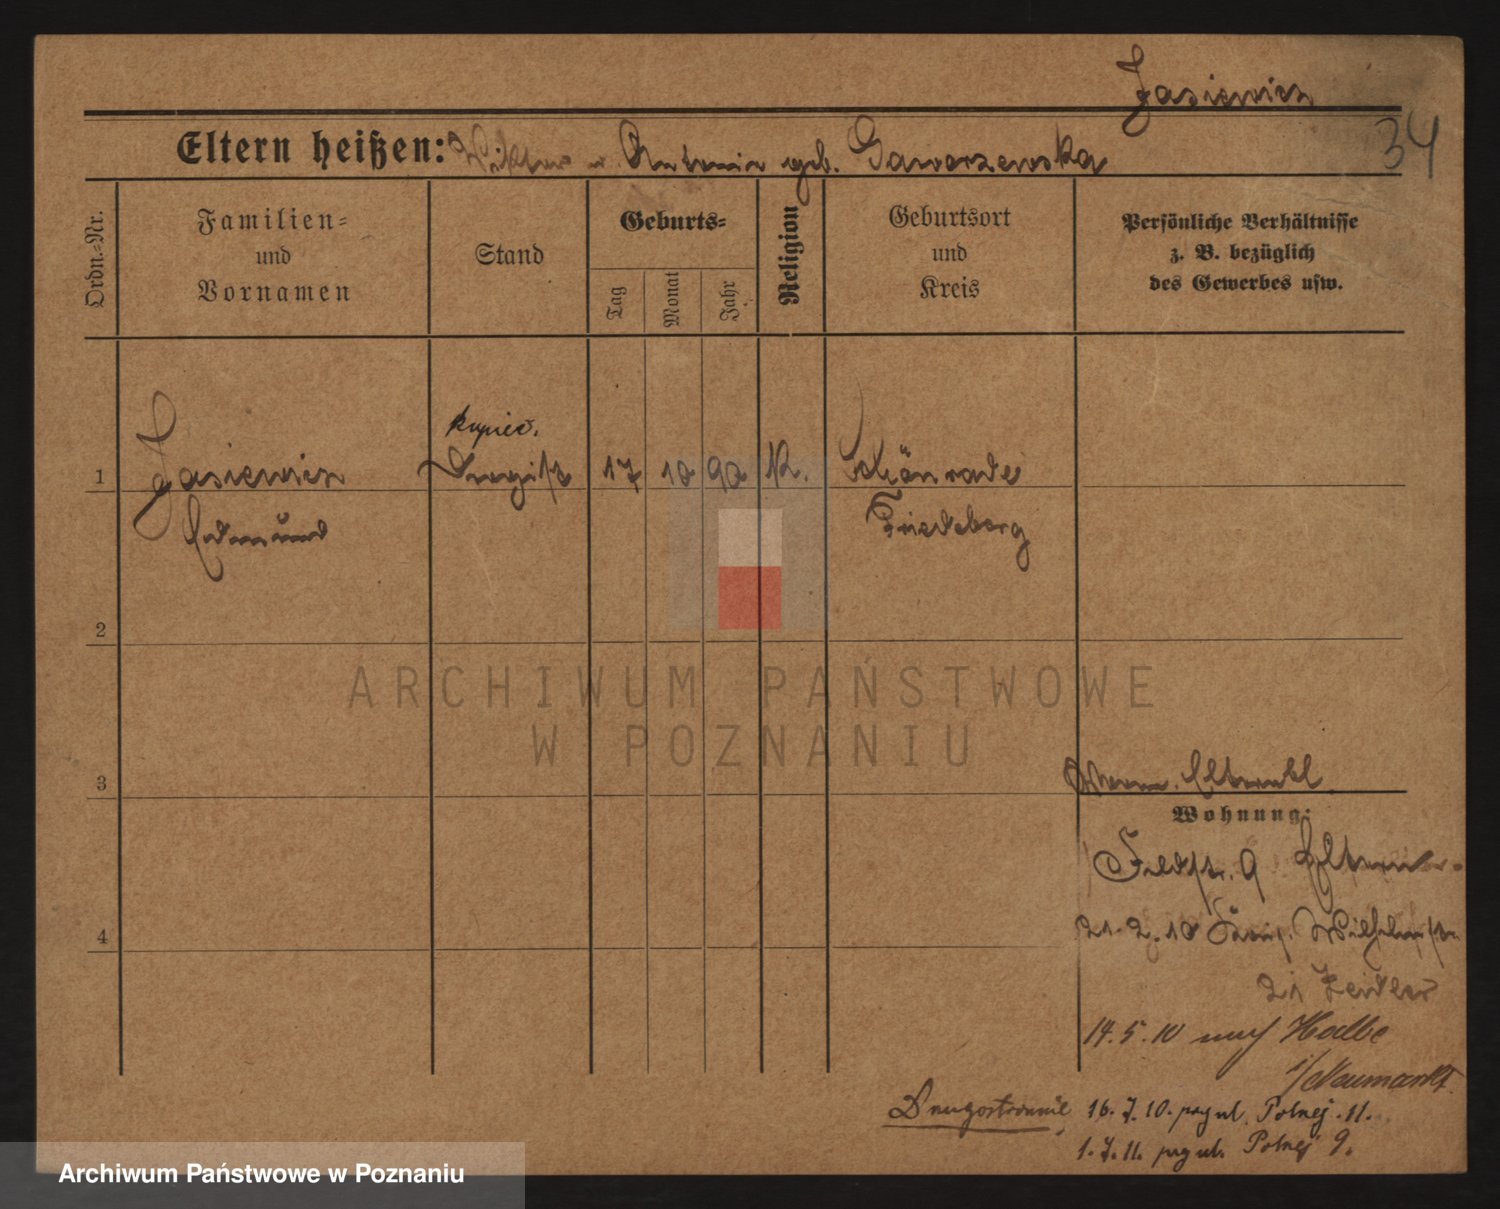 Jasiewicz
34
Eltern heißen: Wiktor u. Antonie geb. Gaworzewska
Ordn.-Nr.
Familien-
und
Vornamen
Stand
Geburts-
Tag
Monat
Jahr
Religion
Geburtsort
und
Kreis
Persönliche Verhältnisse
z. B. bezüglich
des Gewerbes usw.
kupiec.
1 Jasiewicz Drogist 17 10 90 K. Schönrade
Edmund Friedeberg
2
ARCHIWUM PAŃSTWOWE
W POZNANIU
3
Wohnung:
Feldstr. 9 Eltern
4
21. 2. 10 Wilhelmstr.
21 Zeidler
14. 5. 10 nach Halbe
i/Neumarkt.
Drugostronnie 16. 7. 10. przy ul. Polnej 11.
1. 7. 11. przy ul. Polnej 9.
Archiwum Państwowe w Poznaniu